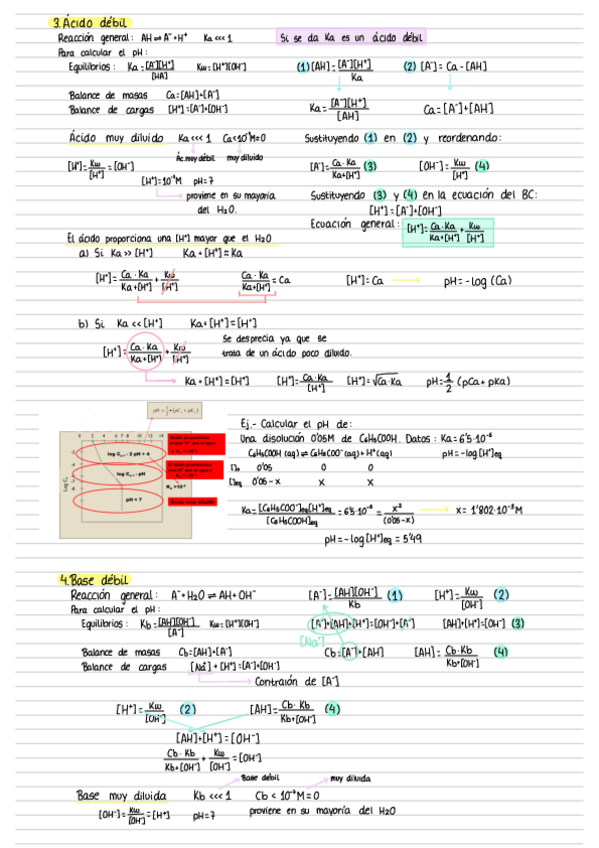 3. Ácido débil
Reacción general: AH ⇌ A⁻ + H⁺ Ka <<< 1 Si se da Ka es un ácido débil
Para calcular el pH:
Equilibrios: Ka = [A⁻][H⁺]/[HA] Kω = [H⁺][OH⁻] (1) [AH] = [A⁻][H⁺]/Ka (2) [A⁻] = Ca - [AH]
Balance de masas Ca = [AH] + [A⁻]
Balance de cargas [H⁺] = [A⁻] + [OH⁻] Ka = [A⁻][H⁺]/[AH] Ca = [A⁻] + [AH]
Ácido muy diluido Ka <<< 1 Ca < 10⁻⁸ M ≈ 0 Sustituyendo (1) en (2) y reordenando:
Ác. muy débil muy diluido
[H⁺] = Kω/[H⁺] = [OH⁻] [A⁻] = Ca · Ka/Ka + [H⁺] (3) [OH⁻] = Kω/[H⁺] (4)
[H⁺] = 10⁻⁷ M pH = 7
proviene en su mayoría del H₂O. Sustituyendo (3) y (4) en la ecuación del BC:
[H⁺] = [A⁻] + [OH⁻]
Ecuación general: [H⁺] = Ca · Ka/Ka + [H⁺] + Kω/[H⁺]
El ácido proporciona una [H⁺] mayor que el H₂O
a) Si Ka >> [H⁺] Ka + [H⁺] ≈ Ka
[H⁺] = Ca · Ka/Ka + [H⁺] + Kω/[H⁺] Ca · Ka/Ka + [H⁺] = Ca [H⁺] = Ca pH = -log (Ca)
b) Si Ka << [H⁺] Ka + [H⁺] = [H⁺]
[H⁺] = Ca · Ka/Ka + [H⁺] + Kω/[H⁺] Se desprecia ya que se
trata de un ácido poco diluido.
Ka + [H⁺] = [H⁺] [H⁺] = Ca · Ka/[H⁺] [H⁺] = √Ca · Ka pH = 1/2 (pCa + pKa)
0 2 4 6 7 8 10 12 14
log Cₐ = - 2 pH + 4
log Cₐ = - pH
pH = 7
Ácido muy diluido
Ej.- Calcular el pH de:
Una disolución 0'05M de C₆H₅COOH. Datos: Ka = 6'5·10⁻⁵
C₆H₅COOH (aq) ⇌ C₆H₅COO⁻ (aq) + H⁺ (aq) pH = -log [H⁺]eq
[]₀ 0'05 0 0
[]eq 0'05 - x x x
Ka = [C₆H₅COO⁻]eq[H⁺]eq/[C₆H₅COOH]eq = 6'5·10⁻⁵ = x²/(0'05 - x) x = 1'802·10⁻³ M
pH = -log [H⁺]eq = 5'49
4. Base débil
Reacción general: A⁻ + H₂O ⇌ AH + OH⁻ [A⁻] = [AH][OH⁻]/Kb (1) [H⁺] = Kω/[OH⁻] (2)
Para calcular el pH:
Equilibrios: Kb = [AH][OH⁻]/[A⁻] Kω = [H⁺][OH⁻] [A⁻] + [AH] + [H⁺] = [OH⁻] + [A⁻] [AH] + [H⁺] = [OH⁻] (3)
[Na⁺]
Balance de masas Cb = [AH] + [A⁻] Cb = [A⁻] + [AH] [AH] = Cb · Kb/Kb + [OH⁻] (4)
Balance de cargas [Na⁺] + [H⁺] = [A⁻] + [OH⁻]
Contraión de [A⁻]
[H⁺] = Kω/[OH⁻] (2) [AH] = Cb · Kb/Kb + [OH⁻] (4)
[AH] + [H⁺] = [OH⁻]
Cb · Kb/Kb + [OH⁻] + Kω/[OH⁻] = [OH⁻]
Base débil muy diluida
Base muy diluida Kb <<< 1 Cb < 10⁻⁸ M ≈ 0
[OH⁻] = Kω/[OH⁻] = [H⁺] pH = 7 proviene en su mayoría del H₂O